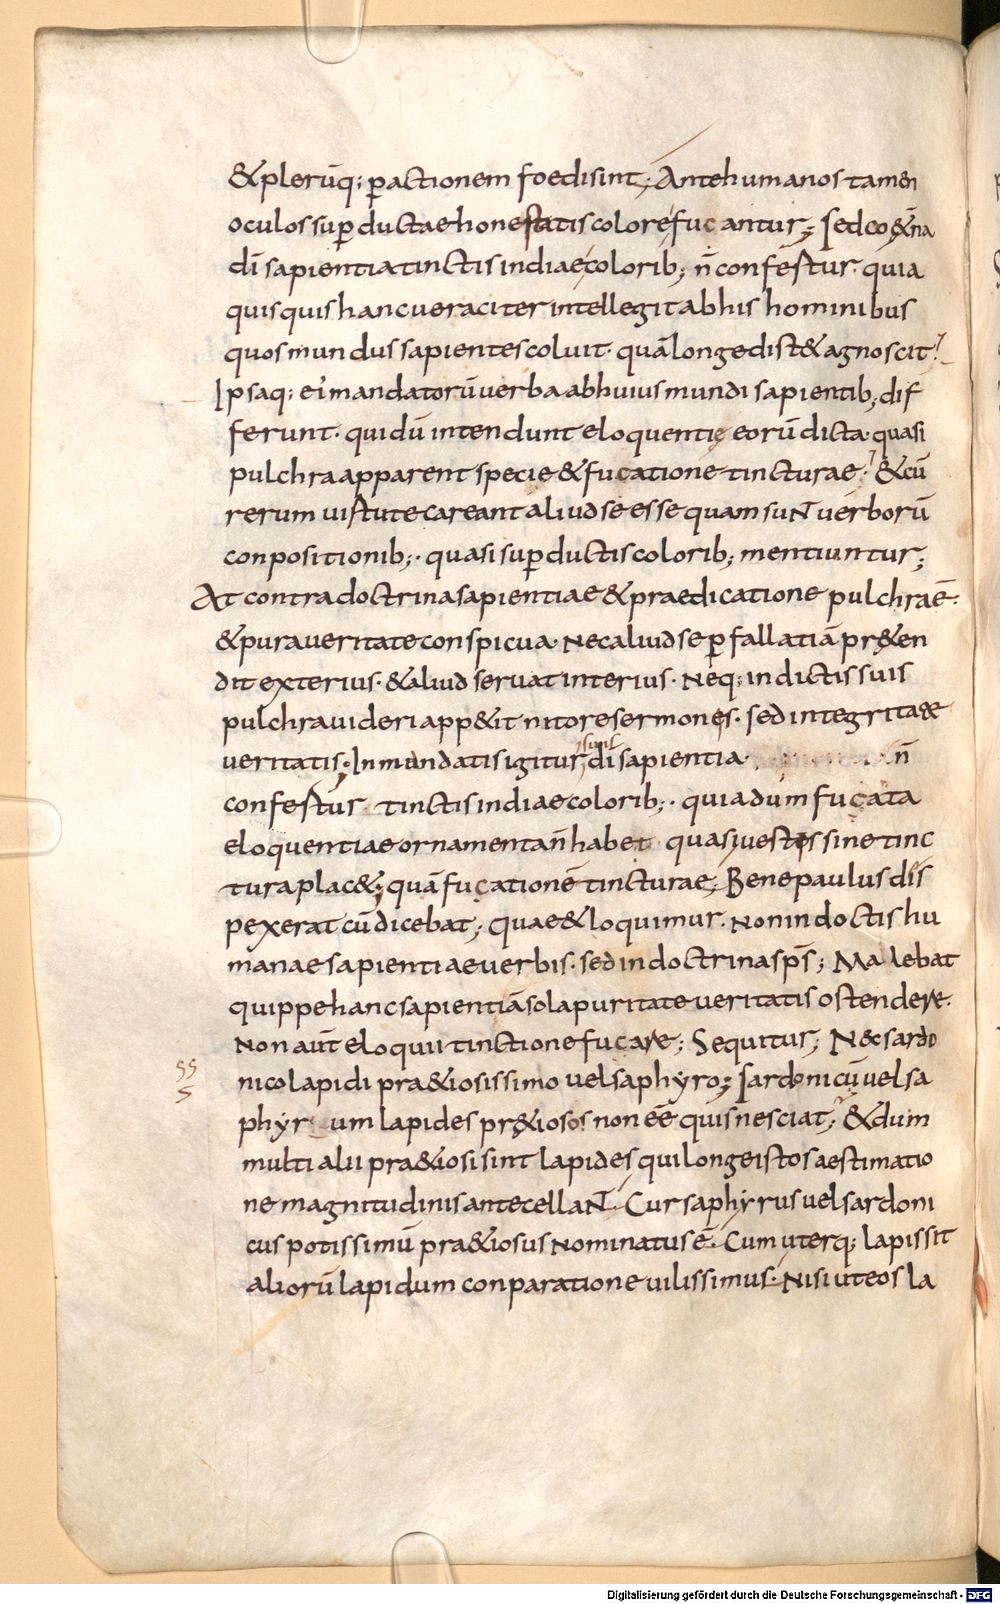 &plerūq; ꝑactionem foedisint; Antehumanos tamen
oculos suꝑductaehonestatis colore fucantur; Sed coæt̄na
dī sapientia tinctis indiae colorib; n̄ confertur. quia
quisquis hanc ueraciter intellegit ab his hominibus
quos mundus sapientes coluit. quā longe dist& agnoscit.
Ipsaq; ei mandatorū uerba ab huius mundi sapientib; dif
ferunt. qui dū intendunt eloquentię eorū dicta quasi
pulchra apparent specie & fucatione tincturae. & cū
rerum uirtute careant aliud se esse quam sunt uerborū
conpositionib;. quasi suꝑductis colorib; mentiuntur;
At contra doctrina sapientiae & praedicatione pulchra ē.
& pura ueritate conspicua. Nec aliud se ꝑ fallatiā pr&en
dit exterius. & aliud seruat interius. Neq; in dictis suis
pulchra uideri app&it nitore sermones. sed integritate
ueritatis; In mundatis igitur suis dī sapientia n̄
confertur tinctis indiae colorib;. quia dum fucata
eloquentiae ornamenta n̄ habet quasi uestes sine tinc
tura plac&; quā fucationē tincturae; Bene paulus dis
pexerat cū dicebat; quae & loquimur. Non in doctis hu
manae sapientiae uerbis. sed in doctrina sp̄s; Malebat
quippe hanc sapientiā sola puritate ueritatis ostendere.
Non aūt eloquii tinctione fucare; Sequitur; Nec sardo
SS
S
nico lapidi pra&iosissimo uel saphyro; Sardonicū uel sa
phyrum lapides pr&iosos non eē quis nesciat; & dum
multi alii pra&iosi sint lapides qui longe istos aestimatio
ne magnitudinis antecellant. Cur saphyrus uel sardoni
cus potissimū pra&iosus nominatus ē. Cum uterq; lapis sit
aliorū lapidum conparatione uilissimus. Nisi ut eos la
Digitalisierung gefördert durch die Deutsche Forschungsgemeinschaft - DFG